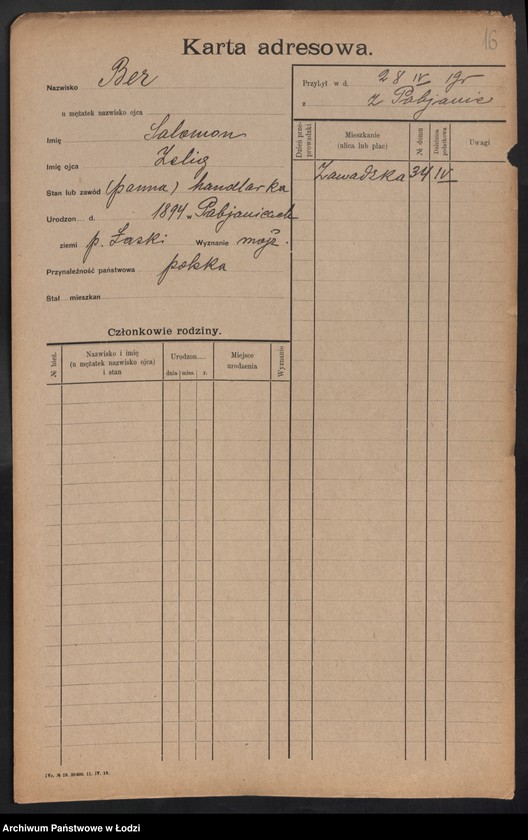 16
Karta adresowa.
Nazwisko Ber
u mężatek nazwisko ojca
Imię Salomon
Imię ojca Zelig
Stan lub zawód (panna) handlarka
Urodzon d. 1894 w Pabjanicach
ziemi p. Łaski Wyznanie mojż.
Przynależność państwowa polska
Stał mieszkan
Przybył w d. 28 IV 19 r
z z Pabjanic
Dzień przeprowadzki
Mieszkanie (ulica lub plac)
№ domu
Dzielnica
Uwagi
Zawadzka 34 IV
Członkowie rodziny.
№ bież.
Nazwisko i imię
(u mężatek nazwisko ojca)
i stan
Urodzon
dnia mies. r.
Miejsce
urodzenia
Wyznanie
Archiwum Państwowe w Łodzi